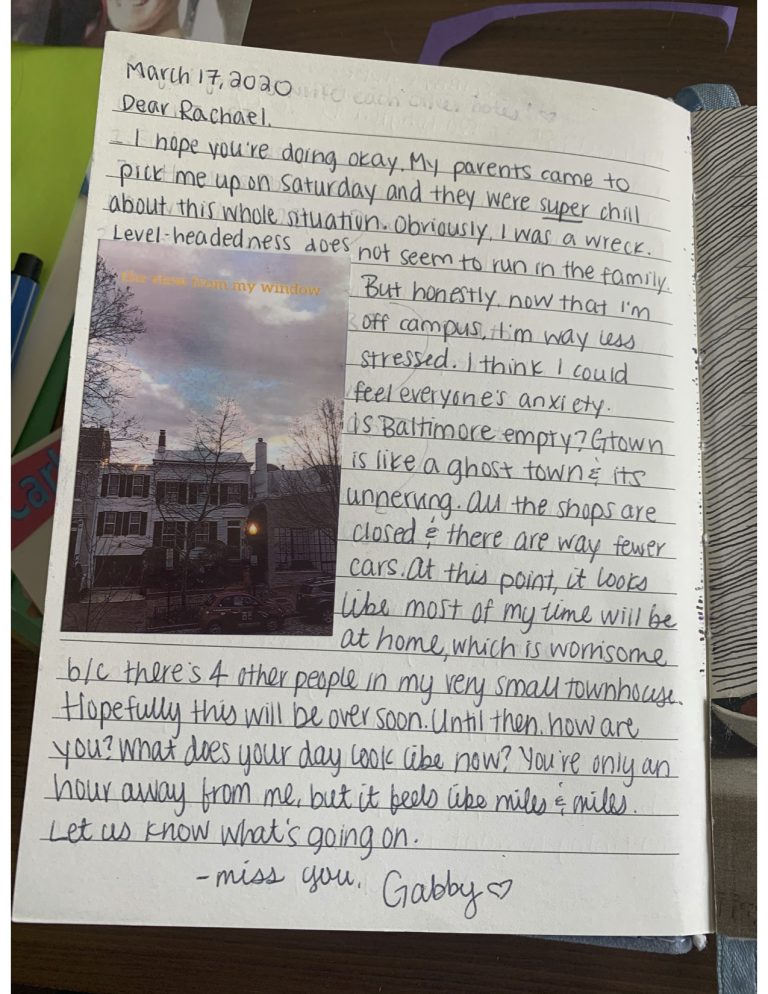 March 17, 2020
Dear Rachael,
I hope you're doing okay. My parents came to
pick me up on Saturday and they were super chill
about this whole situation. Obviously, I was a wreck.
Level-headedness does not seem to run in the family.
the view from my window
But honestly, now that I'm
off campus, I'm way less
stressed. I think I could
feel everyone's anxiety.
is Baltimore empty? Gtown
is like a ghost town & its
unnerving. All the shops are
closed & there are way fewer
cars. At this point, it looks
like most of my time will be
at home, which is worrisome
b/c there's 4 other people in my very small townhouse.
Hopefully this will be over soon. Until then, how are
you? What does your day look like now? You're only an
hour away from me, but it feels like miles & miles.
Let us know what's going on.
-miss you,
Gabby♡